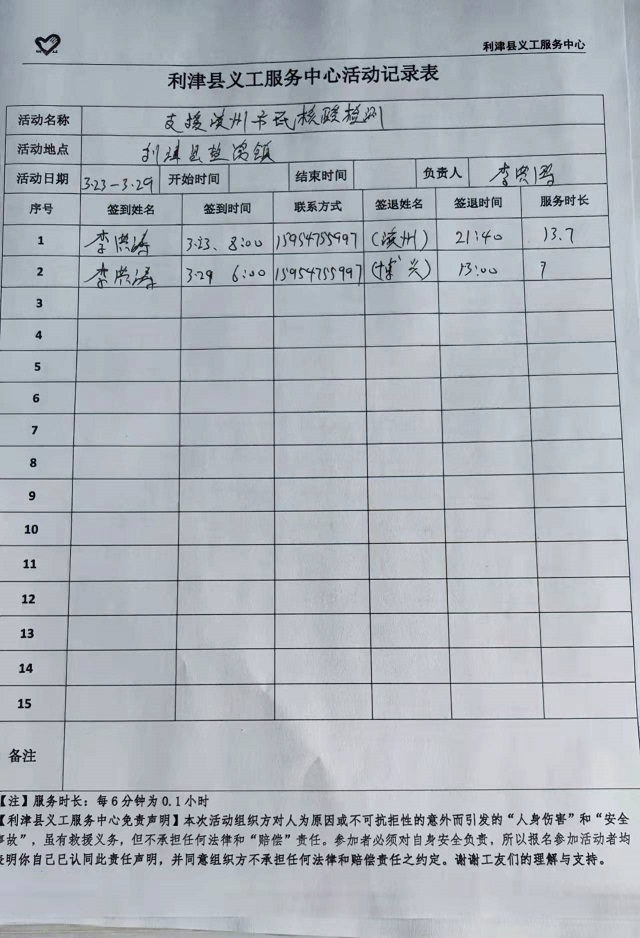 利津县义工服务中心
利津县义工服务中心活动记录表
活动名称 支援滨州市民核酸检测
活动地点 利津县盐窝镇
活动日期 3.23-3.29 开始时间 结束时间 负责人 李
序号 签到姓名 签到时间 联系方式 签退姓名 签退时间 服务时长
1 李洪涛 3.23、8:00 15954755997 (滨州) 21:40 13.7
2 李洪涛 3.29 6:00 15954755997 (博兴) 13:00 7
3
4
5
6
7
8
9
10
11
12
13
14
15
备注
【注】服务时长：每6分钟为0.1小时
【利津县义工服务中心免责声明】本次活动组织方对人为原因或不可抗拒性的意外而引发的“人身伤害”和“安全
事故”，虽有救援义务，但不承担任何法律和“赔偿”责任。参加者必须对自身安全负责，所以报名参加活动者均
证明你自己已认同此责任声明，并同意组织方不承担任何法律和赔偿责任之约定。谢谢工友们的理解与支持。